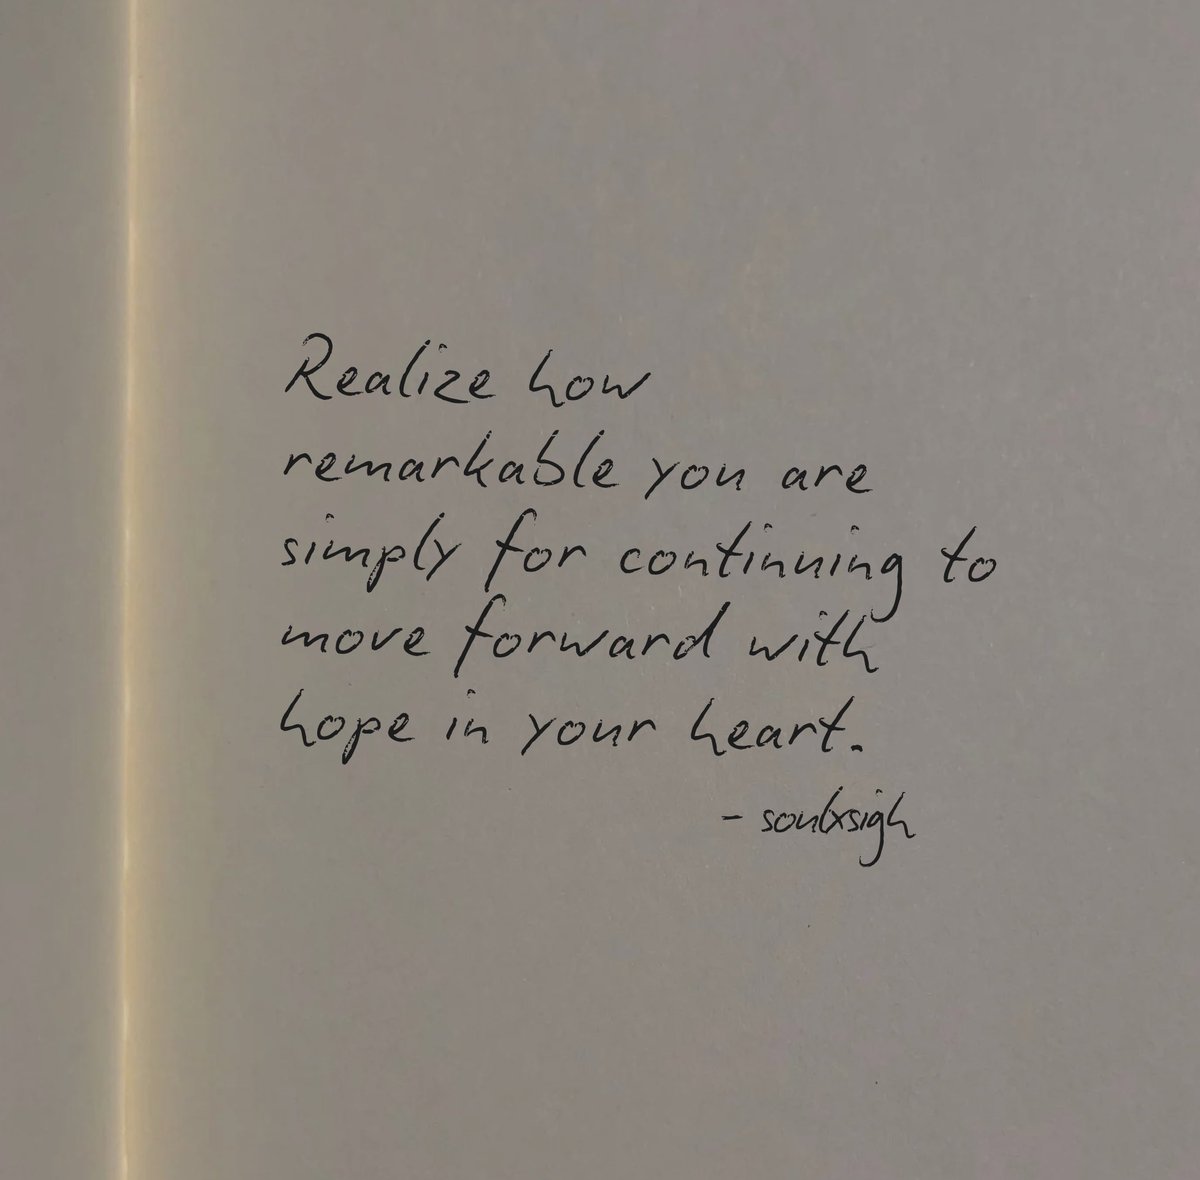 Realize how
remarkable you are
simply for continuing to
move forward with
hope in your heart.
- soulxsigh